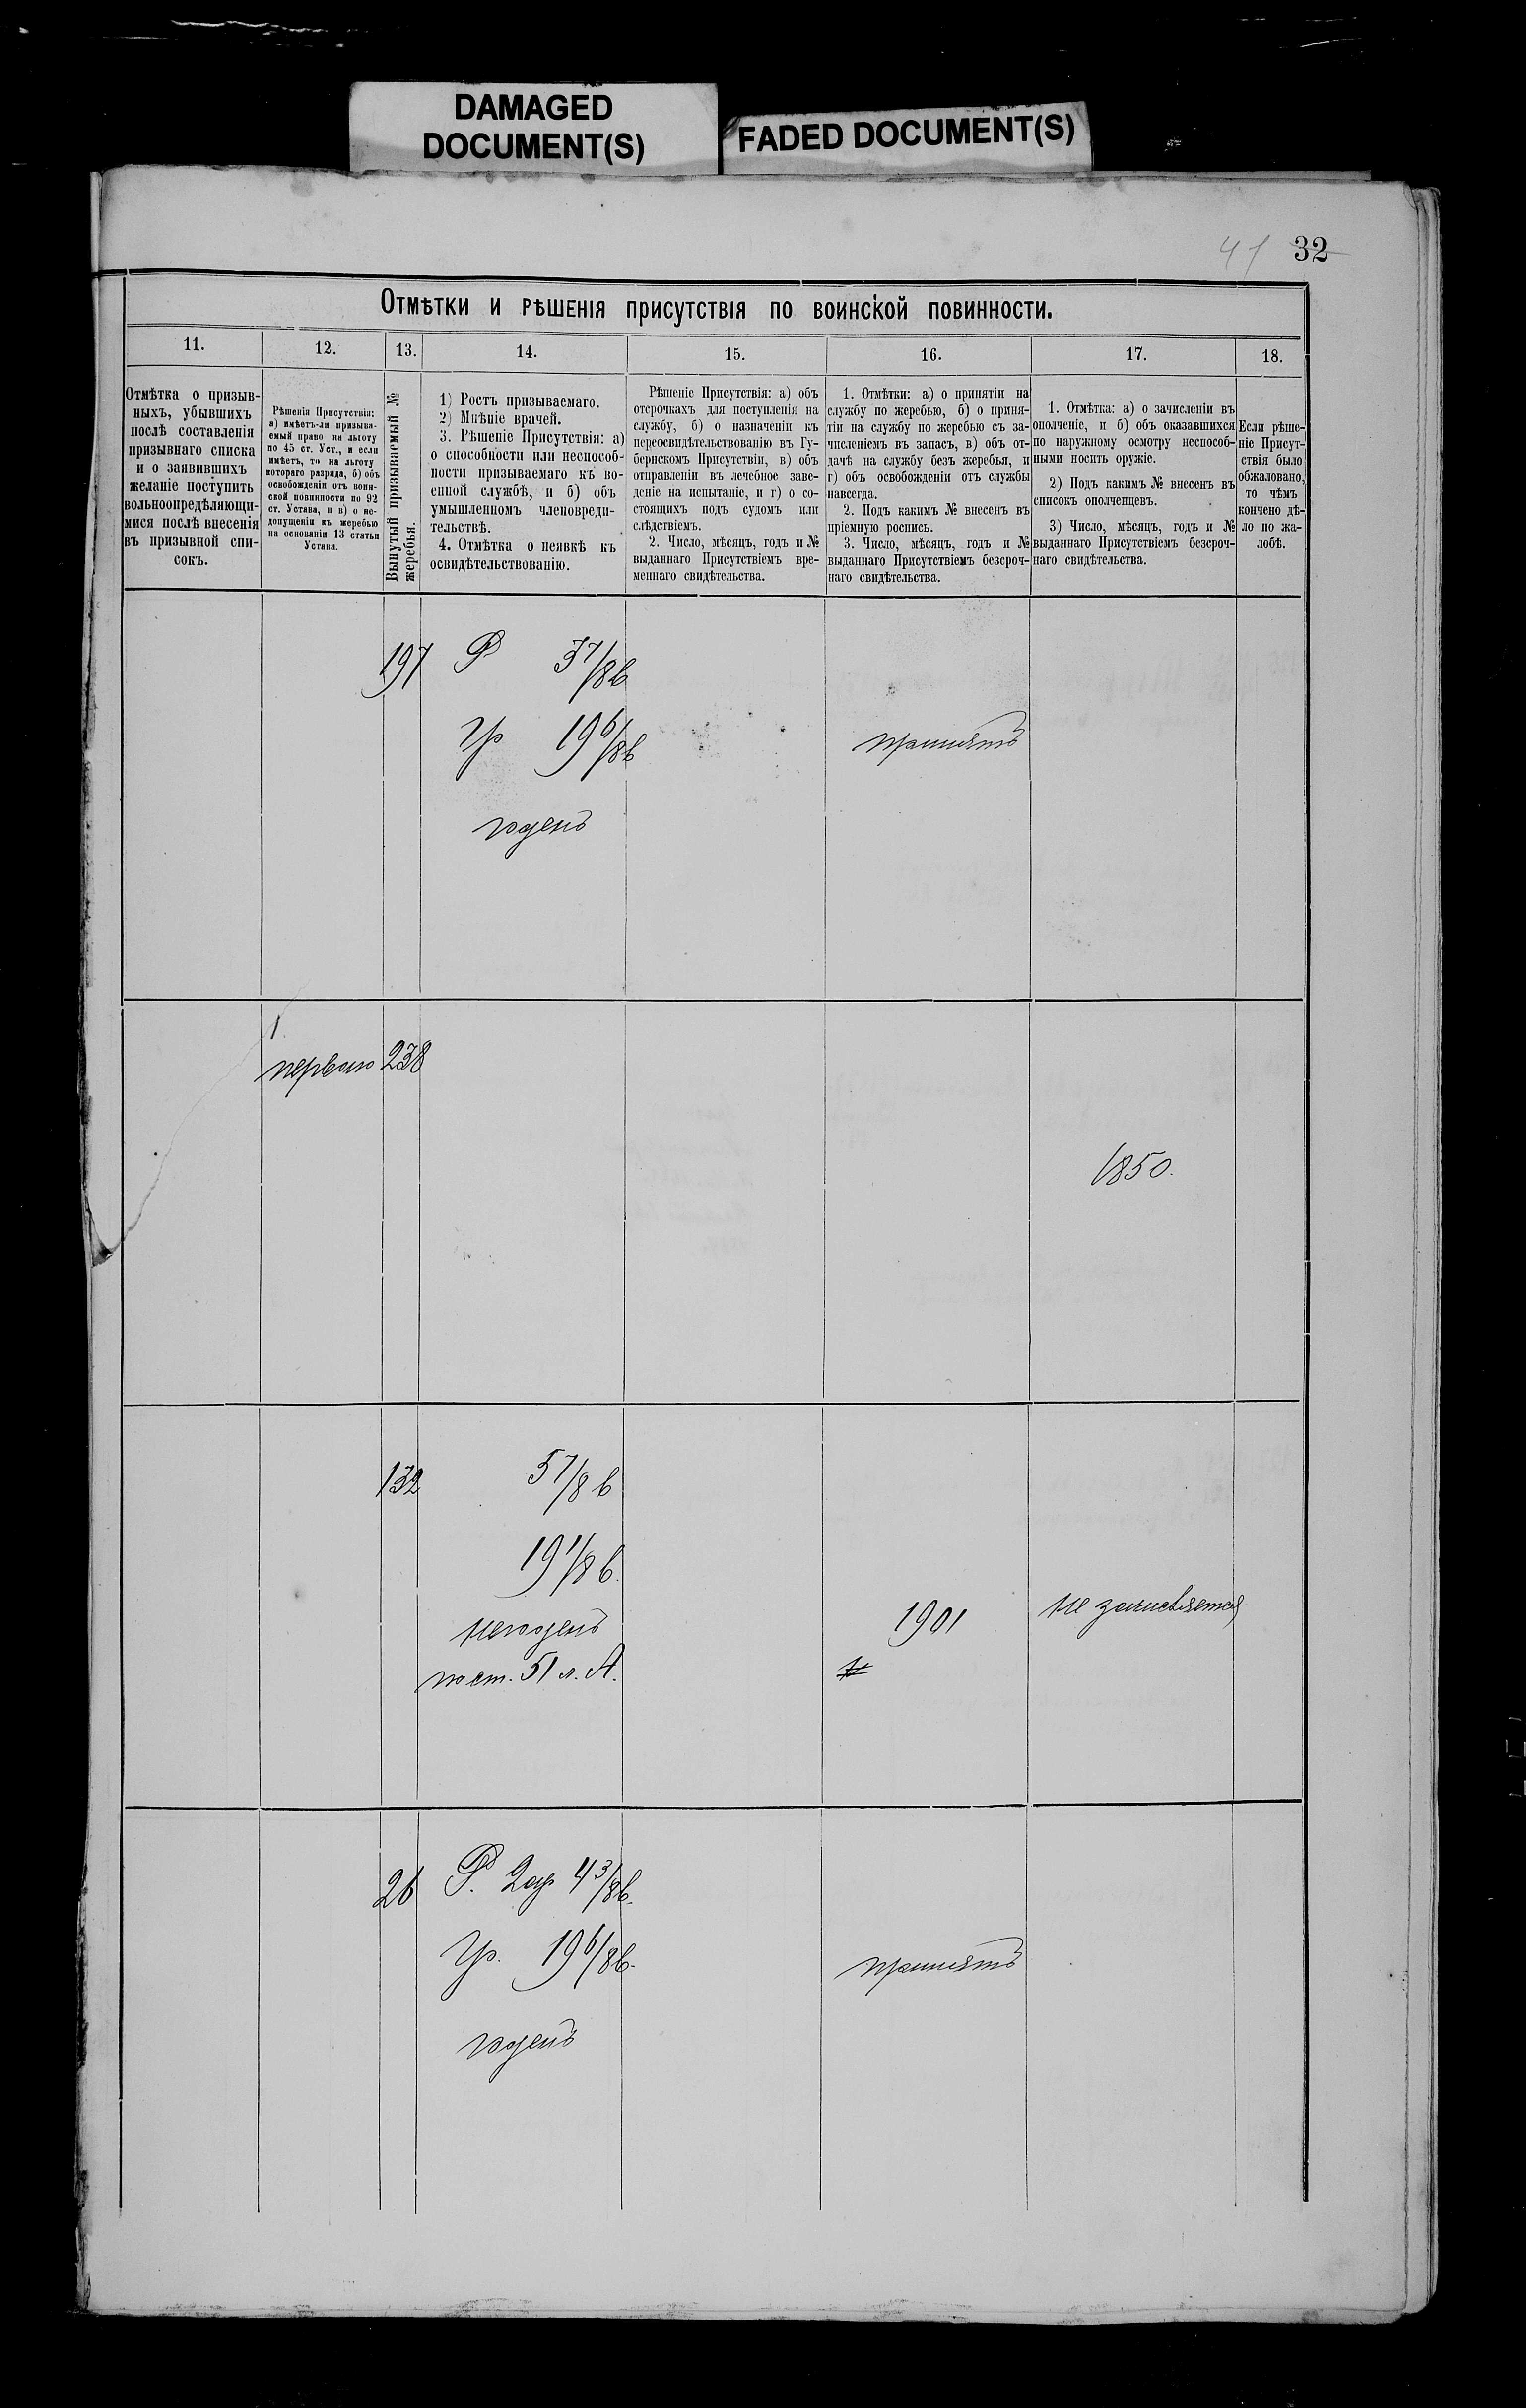 DAMAGED
DOCUMENT(S)
FADED DOCUMENT(S)
41 32
Отмѣтки и рѣшенія присутствія по воинской повинности.
11. 12. 13. 14. 15. 16. 17. 18.
Отмѣтка о призыв-
ныхъ, убывшихъ
послѣ составленія
призывнаго списка
и о заявившихъ
желаніе поступить
вольноопредѣляющи-
мися послѣ внесенія
въ призывной спи-
сокъ.
Рѣшенія Присутствія:
а) имѣетъ-ли призыва-
емый право на льготу
по 45 ст. Уст., и если
имѣетъ, то на льготу
котораго разряда, б) объ
освобожденіи отъ воин-
ской повинности по 92
ст. Устава, и в) о не-
допущеніи къ жеребью
на основаніи 13 статьи
Устава.
Вынутый призываемый №
жеребья.
1) Ростъ призываемаго.
2) Мнѣніе врачей.
3. Рѣшеніе Присутствія: а)
о способности или неспособ-
ности призываемаго къ во-
енной службѣ, и б) объ
умышленномъ членовреди-
тельствѣ.
4. Отмѣтка о неявкѣ къ
освидѣтельствованію.
Рѣшеніе Присутствія: а) объ
отсрочкахъ для поступленія на
службу, б) о назначеніи къ
переосвидѣтельствованію въ Гу-
бернскомъ Присутствіи, в) объ
отправленіи въ лечебное заве-
деніе на испытаніе, и г) о со-
стоящихъ подъ судомъ или
слѣдствіемъ.
2. Число, мѣсяцъ, годъ и №
выданнаго Присутствіемъ вре-
меннаго свидѣтельства.
1. Отмѣтки: а) о принятіи на
службу по жеребью, б) о приня-
тіи на службу по жеребью съ за-
численіемъ въ запасъ, в) объ от-
дачѣ на службу безъ жеребья, и
г) объ освобожденіи отъ службы
навсегда.
2. Подъ какимъ № внесенъ въ
пріемную роспись.
3. Число, мѣсяцъ, годъ и №
выданнаго Присутствіемъ безсроч-
наго свидѣтельства.
1. Отмѣтка: а) о зачисленіи въ
ополченіе, и б) объ оказавшихся
по наружному осмотру неспособ-
ными носить оружіе.
2) Подъ какимъ № внесенъ въ
списокъ ополченцевъ.
3) Число, мѣсяцъ, годъ и №
выданнаго Присутствіемъ безсроч-
наго свидѣтельства.
Если рѣше-
ніе Присут-
ствія было
обжаловано,
то чѣмъ
кончено дѣ-
ло по жа-
лобѣ.
197 Р 5 7/8 в
Гр 19 6/8 в
принятъ
годенъ
1
перваго 238
1850.
132 5 7/8 в
19 1/8 в.
негоденъ
по ст. 51 л. А.
1901
не зачисляется
26 Р. 2 ар 4 3/8 в.
Гр. 19 6/8 в.
принятъ
годенъ